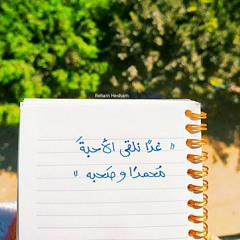 Reham Hesham
" غدًا نلقى الأحبةَ
مُحمدًا و صَحبه "